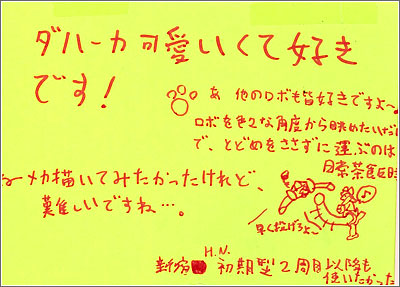 ダハーカ可愛いくて好き
です！
あ 他のロボも皆好きですよ〜。
ロボを色々な角度から眺めたいだけ
で、とどめをささずに運ぶのは
日常茶飯時
〜メカ描いてみたかったけれど、
難しいですね…。
早く投げろよ〜
H.N.
新宿 初期型2周目以降も
使いたかった